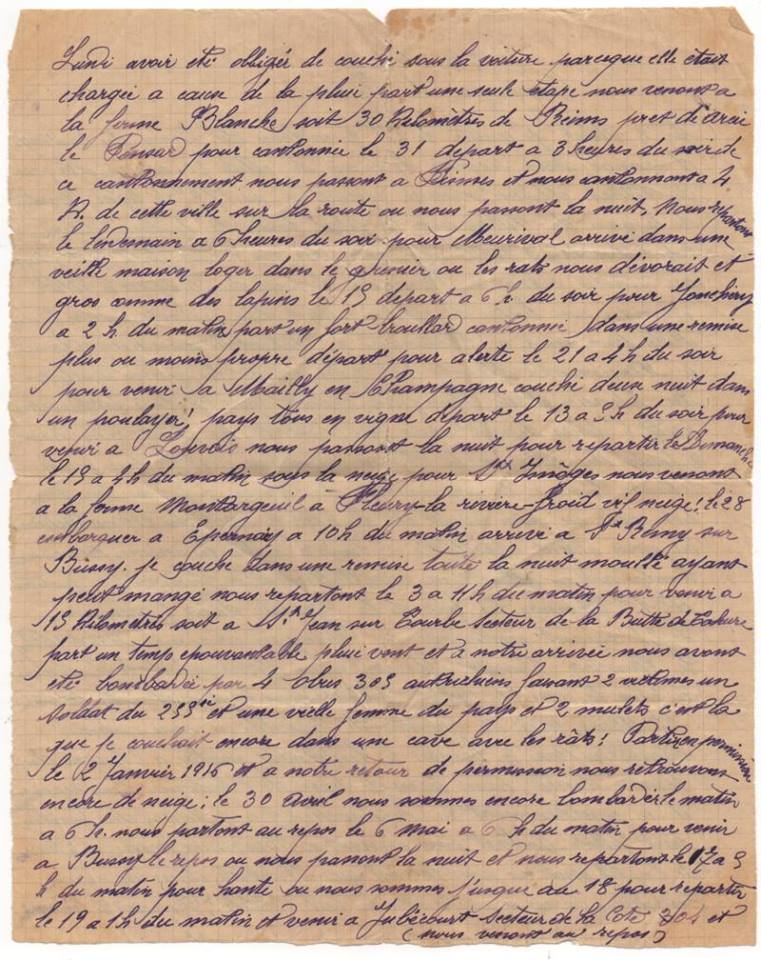 Lundi avoir eté obligér de couché sous la voiture parceque elle étais
chargée a cause de la pluie part une seule étape nous venont a
la ferme Blanche soit 30 Kilomètres de Reims pret de
le pour cantonnée le 31 depart a 3 heures du soir de
ce cantonnement nous passont a Fismes et nous cantonnont a 4
K. de cette ville sur la route ou nous passont la nuit. Nous repartons
le lendemain a 6 heures du soir pour Meurival arrivé dans une
veille maison loger dans le grenier ou les rats nous dévorait et
gros comme des lapins le 15 depart a 6 h. du soir pour Jonchery
a 2 h du matin part un fort brouillard cantonnée dans une remise
plus ou moins propre départ pour alerte le 21 a 4h du soir
pour venir a Mailly en Champagne couché deux nuit dans
un poulayer! pays tous en vigne depart le 13 a 5h du soir pour
venir a Louvois nous passont la nuit pour repartir le Dimanche
le 15 a 4h du matin sous la neige pour St Imôges nous venont
a la ferme Montorgeuil à Fleury-la rivière-froid vif neige! le 28
embarquer a Epernay a 10h du matin arrivé a St Remy sur
Bussy. je couche dans une remise toute la nuit mouillé ayant
peut mangé nous repartont le 3 a 4h du matin pour venir a
15 Kilometres soit a St Jean sur Tourbe Secteur de la Butte de Tahure
part un temp epouvantable pluie vent et a notre arrivée nous avons
eté bombardée par 4 obus 305 autrichiens faisant 2 victimes un
soldat du 255me et une vielle femme du pays et 2 mulets c'est la
que je couchait encore dans une cave avec les râts! Partis en permission
le 2 Janvier 1916 et a notre retour de permission nous retrouvons
encore de neige; le 30 avril nous sommes encore bombardée le matin
a 6 h. nous partont au repos le 6 mai a 6 h du matin pour venir
a Bussy le repos ou nous passont la nuit et nous repartons le 17 a 5
h du matin pour hante ou nous sommes jusque au 18 pour repartir
le 19 a 1h du matin et venir a Jubécourt Secteur de la Cote 304 et
(nous venont au repos)